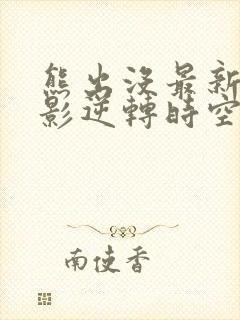 熊出没最新
影逆轉時空
南使香